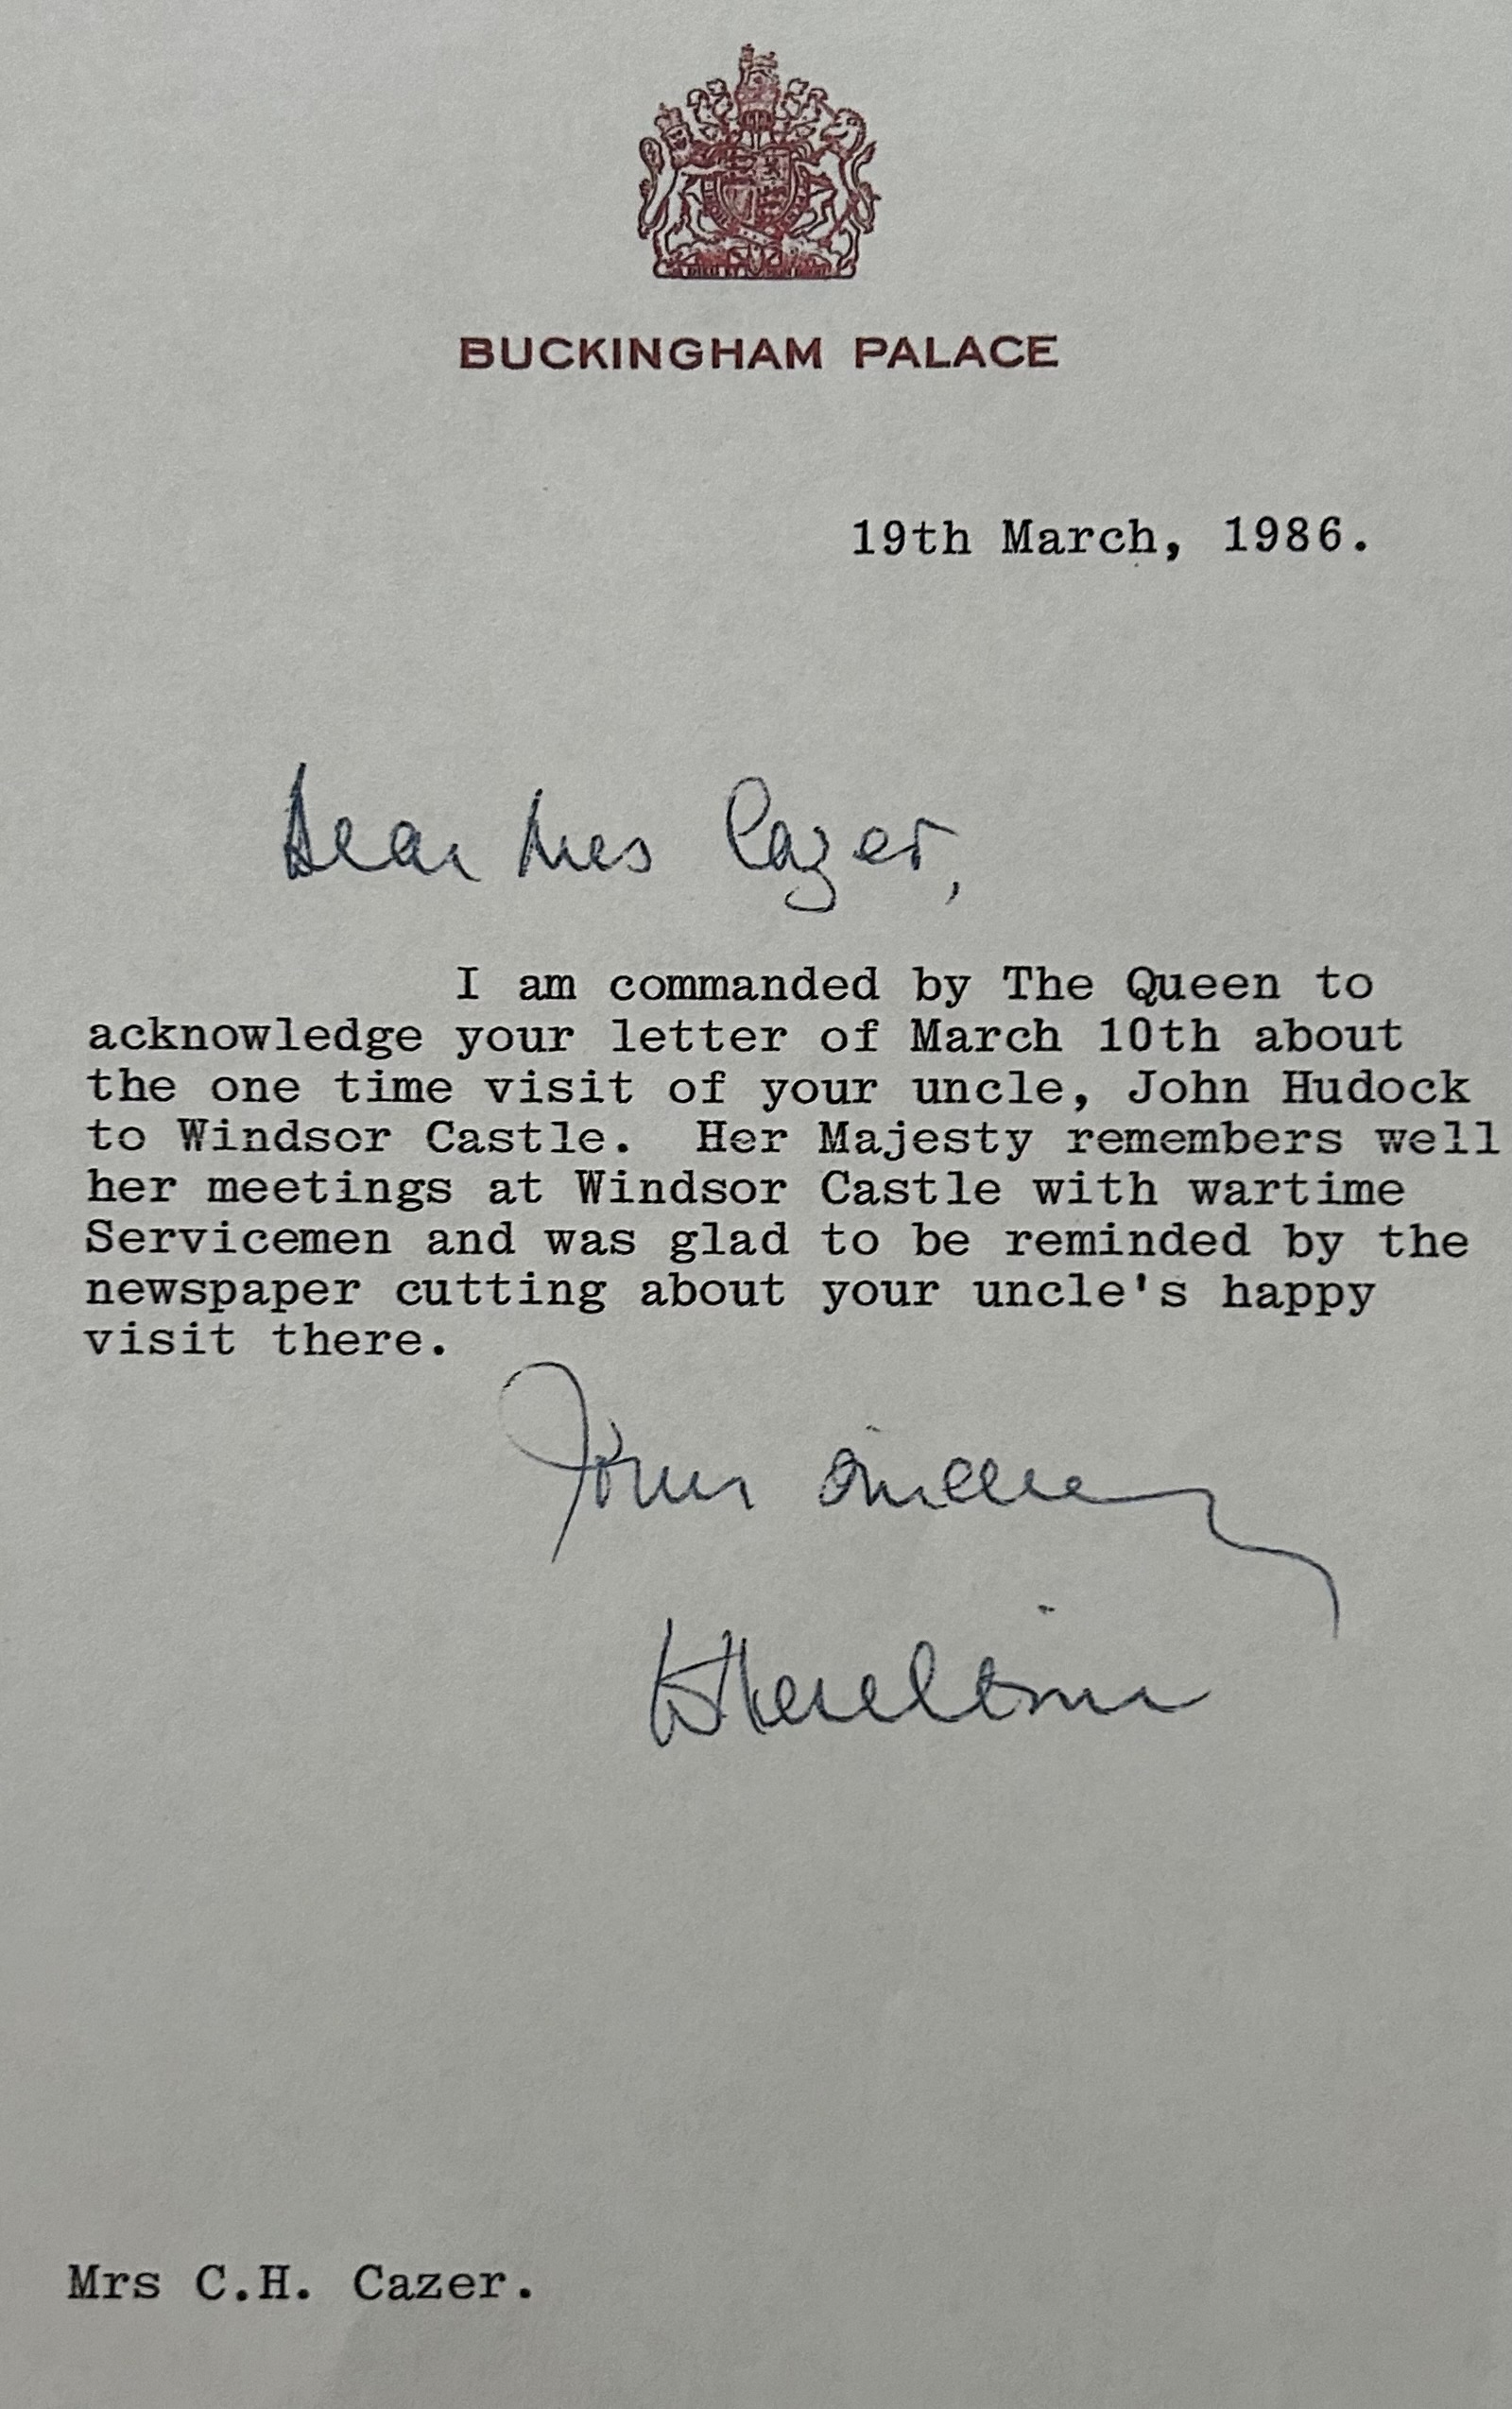 BUCKINGHAM PALACE
19th March, 1986.
Dear Mrs Cazer,
I am commanded by The Queen to
acknowledge your letter of March 10th about
the one time visit of your uncle, John Hudock
to Windsor Castle. Her Majesty remembers well
her meetings at Windsor Castle with wartime
Servicemen and was glad to be reminded by the
newspaper cutting about your uncle's happy
visit there.
Yours sincerely
Mrs C.H. Cazer.